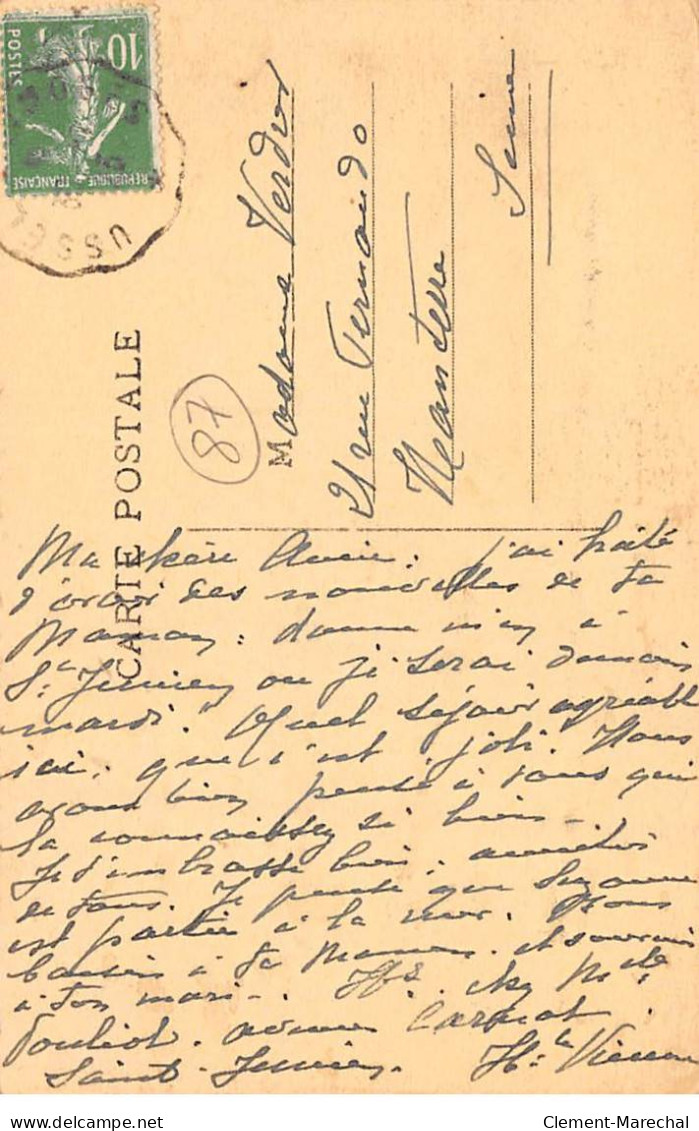 10
POSTES
REPUBLIQUE FRANÇAISE
USSEL
CARTE POSTALE
87
Madame Verdier
21 rue Fernando
Nanterre
Seine
Ma chère Amie : j'ai hâte
d'avoir des nouvelles de ta
Maman : donne m'en à
St Junien où je serai demain
mardi. Quel séjour agréable
ici, que c'est joli. Nous
avons bien pensé à vous qui
la connaissez si bien -
Je t'embrasse bien, amitiés
de tous. Je pense que Suzanne
est partie à la mer. Bons
baisers à ta Maman et souvenirs
à ton mari -. chez Mlle
avenue Carnot.
Saint-Junien.
delcampe.net
Clement-Marechal